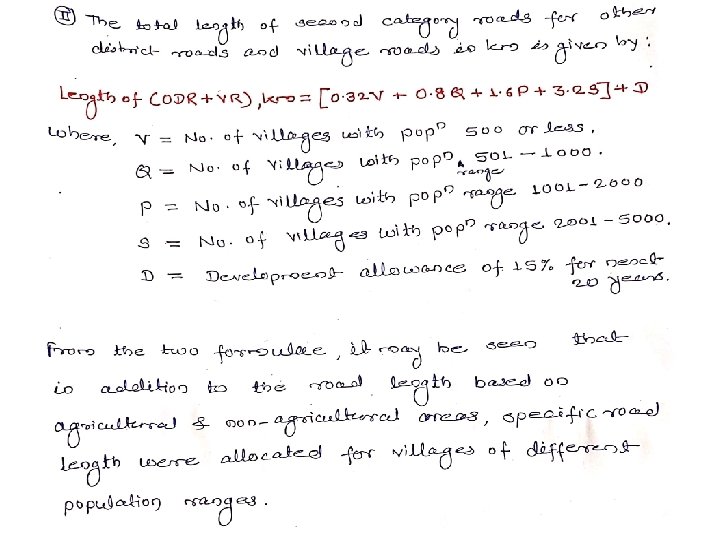 (II) The total length of second category roads for other
district roads and village roads in km is given by:
Length of (ODR+VR), km = [0.32V + 0.8Q + 1.6P + 3.2S] + D
Where, V = No. of villages with popn 500 or less.
Q = No. of Villages with popn range 501 - 1000.
P = No. of villages with popn range 1001-2000
S = No. of villages with popn range 2001-5000.
D = Development allowance of 15% for next
20 years.
From the two formulae, it may be seen that
in addition to the road length based on
agricultural & non-agricultural areas, specific road
length were allocated for villages of different
population ranges.